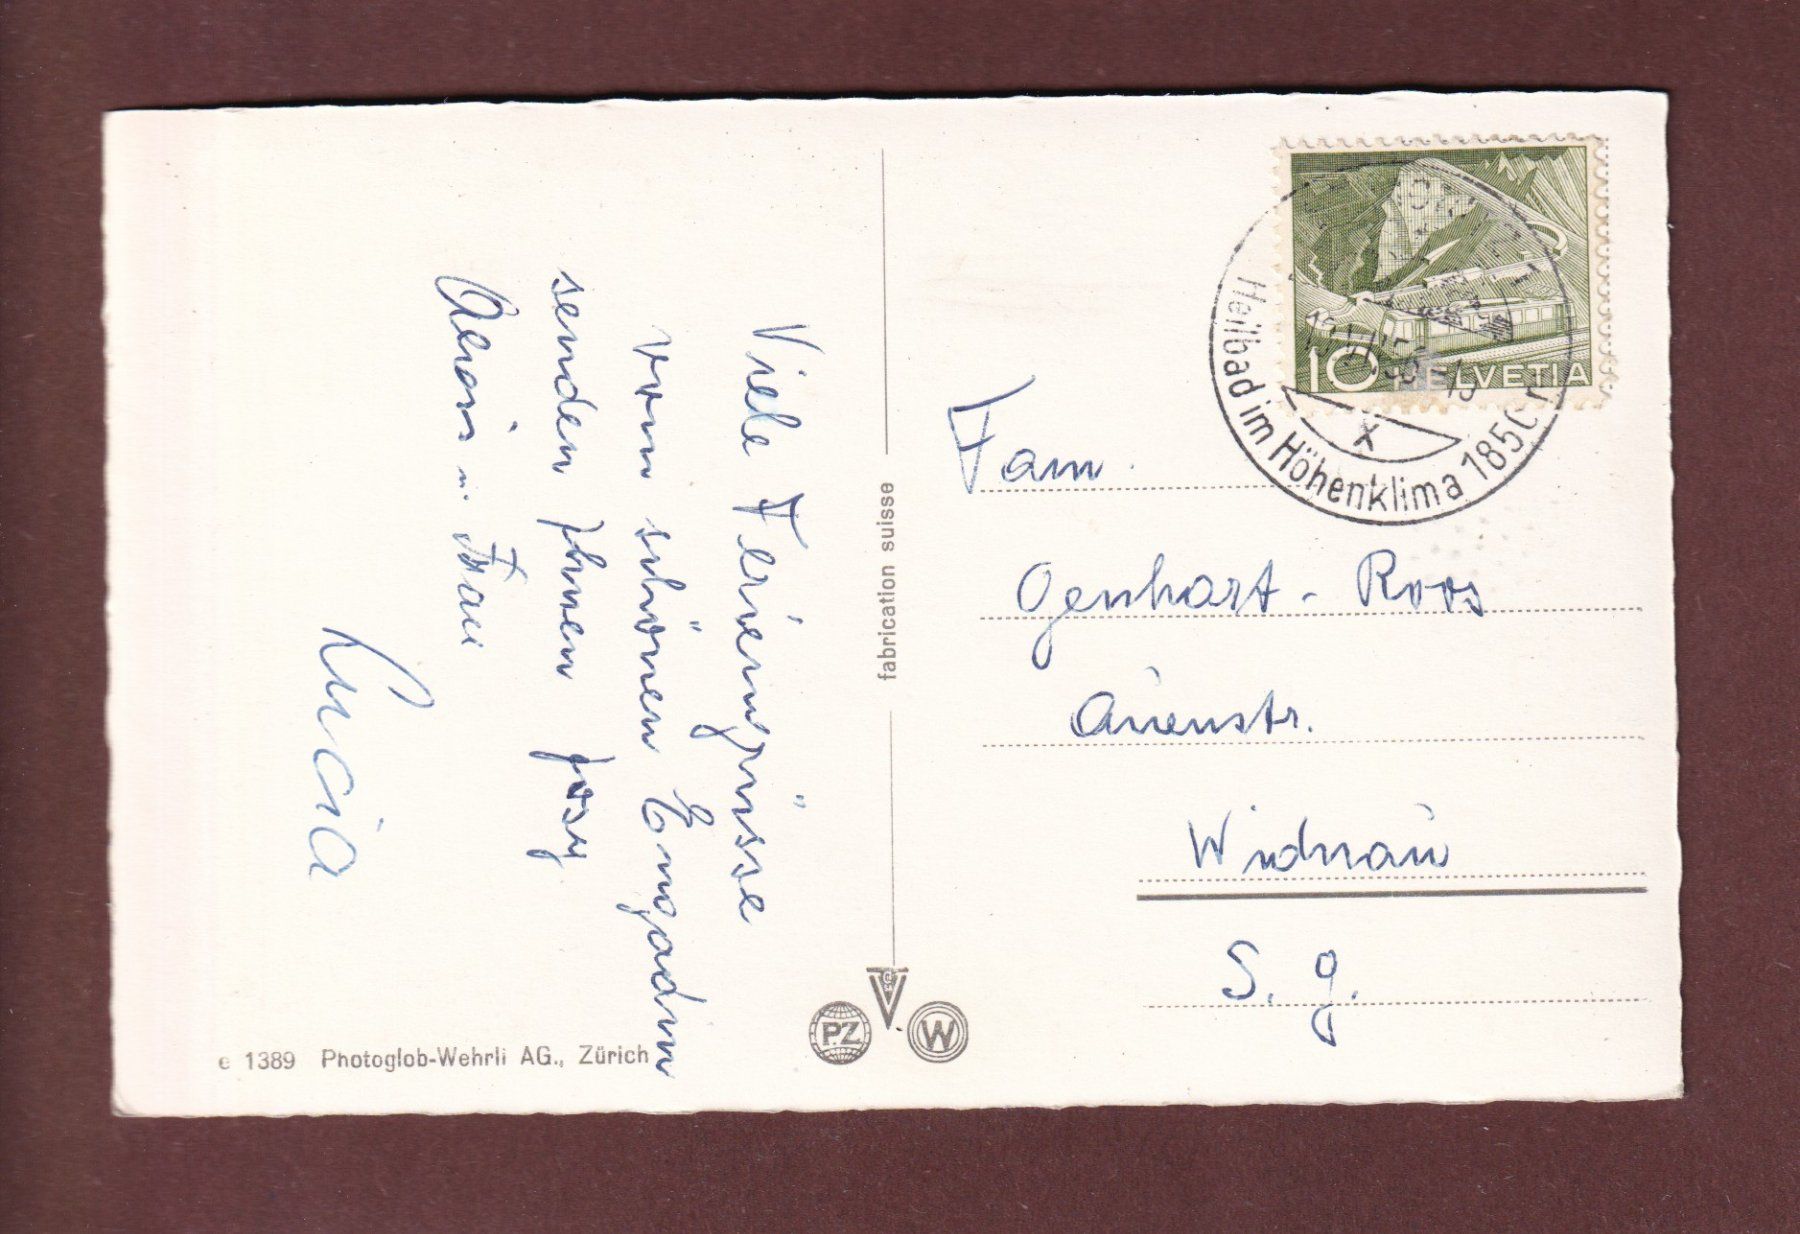 Viele Feriengrüsse
vom schönen Engadin
senden Ihnen Josy
Alois u. Frau
Lucia
fabrication suisse
Fam.
Genhart - Roos
Auenstr.
Widnau
S. G.
10 HELVETIA
Heilbad im Höhenklima 1850 m
X
PZ
W
e 1389 Photoglob-Wehrli AG., Zürich